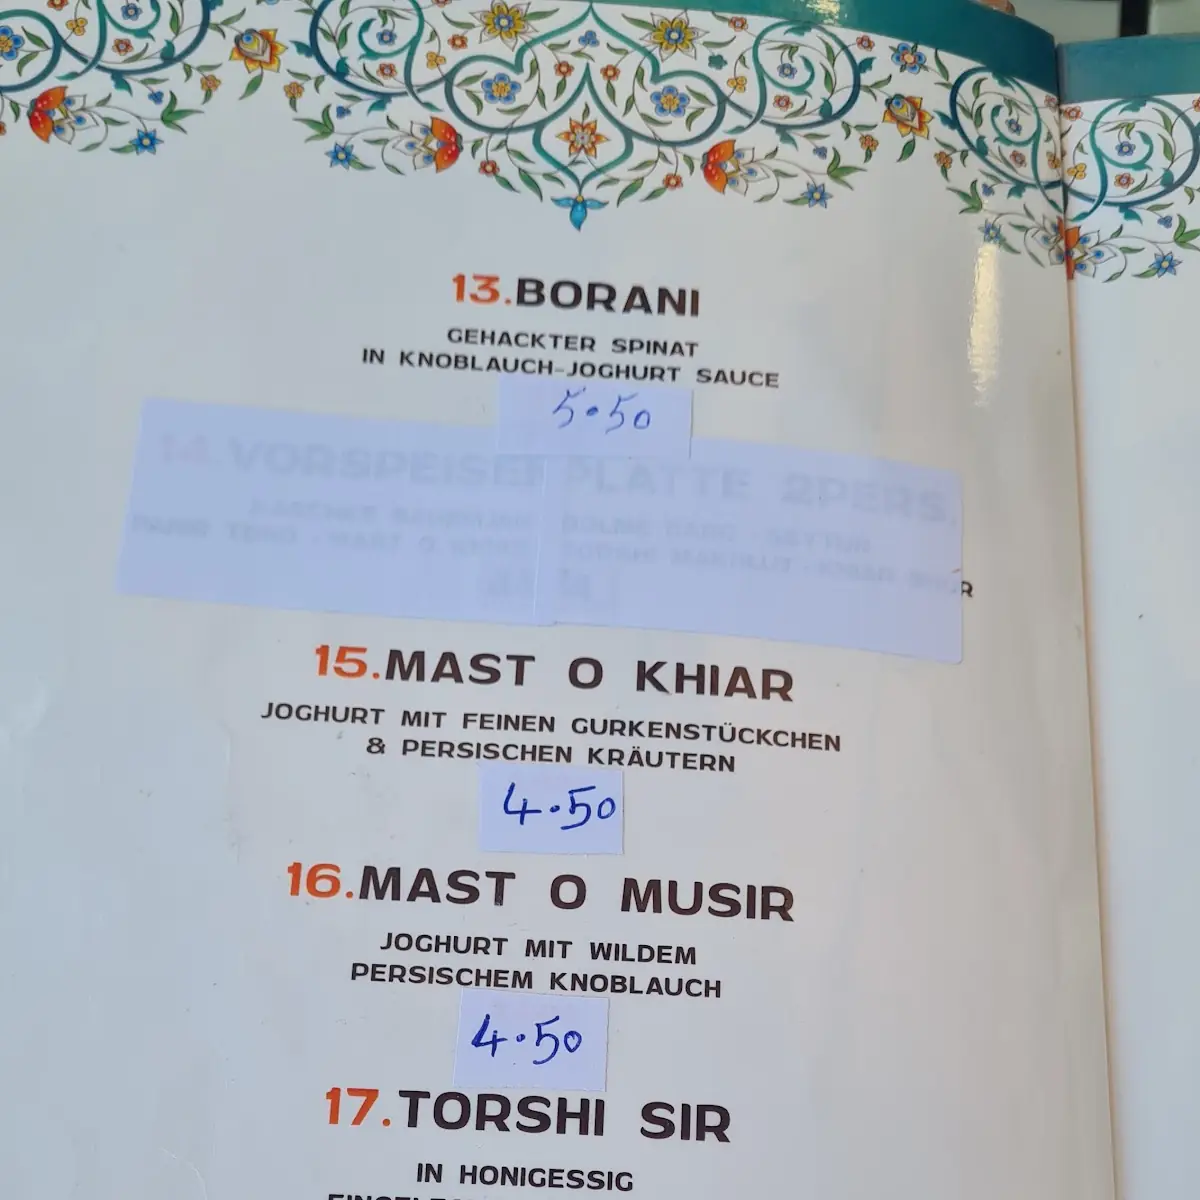 13.BORANI
GEHACKTER SPINAT
IN KNOBLAUCH-JOGHURT SAUCE
5.50
14.VORSPEISEN PLATTE 2PERS.
R
15.MAST O KHIAR
JOGHURT MIT FEINEN GURKENSTÜCKCHEN
& PERSISCHEN KRÄUTERN
4.50
16.MAST O MUSIR
JOGHURT MIT WILDEM
PERSISCHEM KNOBLAUCH
4.50
17.TORSHI SIR
IN HONIGESSIG